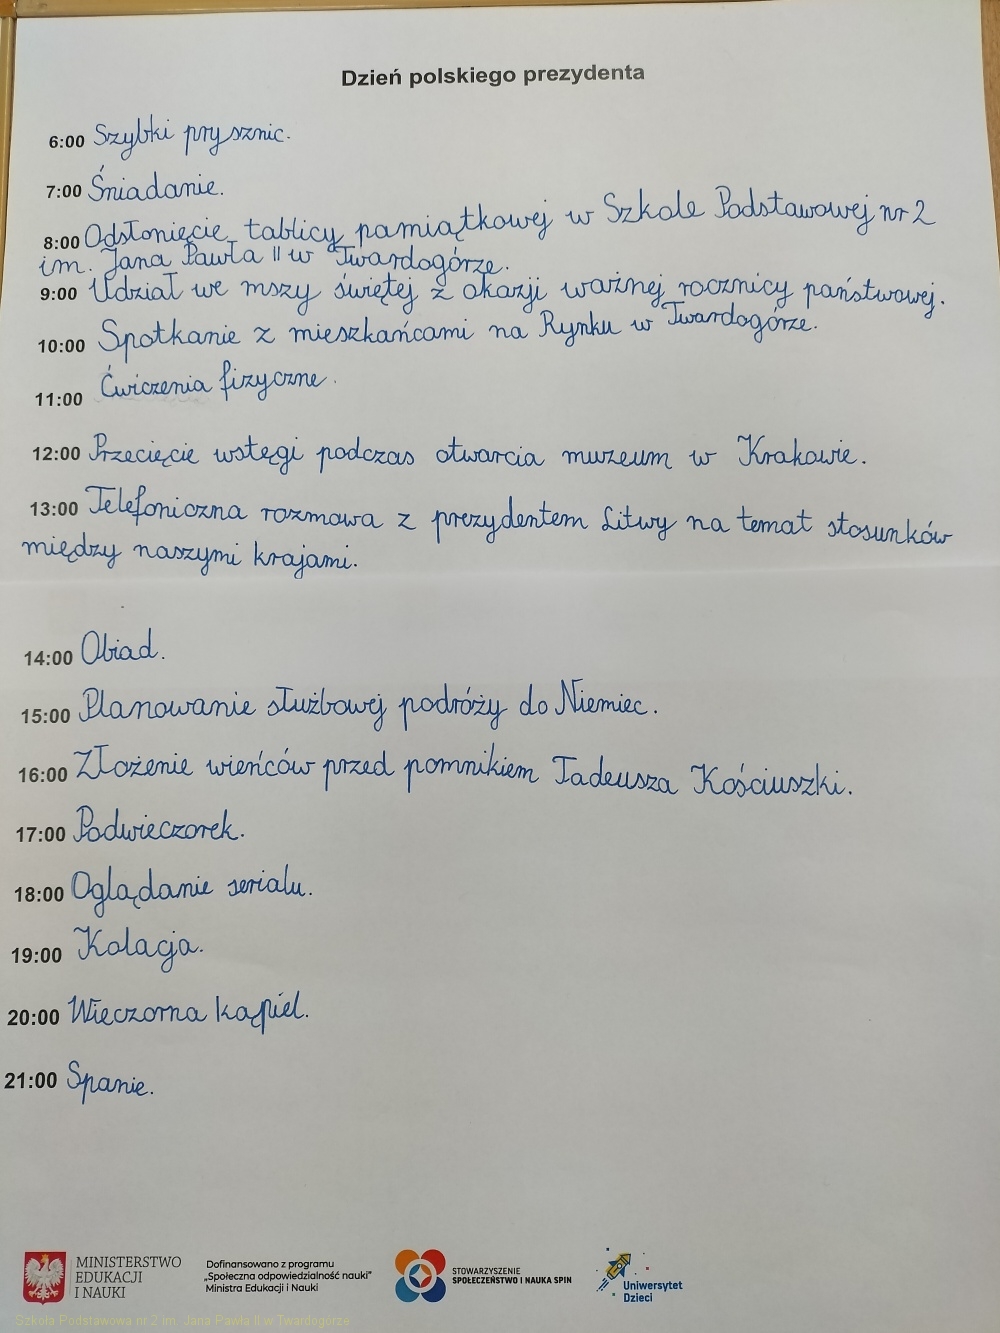 Dzień polskiego prezydenta
6:00 Szybki prysznic.
7:00 Śniadanie.
8:00 Odsłonięcie tablicy pamiątkowej w Szkole Podstawowej nr 2
im. Jana Pawła II w Twardogórze.
9:00 Udział we mszy świętej z okazji ważnej rocznicy państwowej.
10:00 Spotkanie z mieszkańcami na Rynku w Twardogórze.
11:00 Ćwiczenia fizyczne.
12:00 Przecięcie wstęgi podczas otwarcia muzeum w Krakowie.
13:00 Telefoniczna rozmowa z prezydentem Litwy na temat stosunków
między naszymi krajami.
14:00 Obiad.
15:00 Planowanie służbowej podróży do Niemiec.
16:00 Złożenie wieńców przed pomnikiem Tadeusza Kościuszki.
17:00 Podwieczorek.
18:00 Oglądanie serialu.
19:00 Kolacja.
20:00 Wieczorna kąpiel.
21:00 Spanie.
MINISTERSTWO
EDUKACJI
I NAUKI
Dofinansowano z programu
„Społeczna odpowiedzialność nauki”
Ministra Edukacji i Nauki
STOWARZYSZENIE
SPOŁECZEŃSTWO I NAUKA SPIN
Uniwersytet
Dzieci
Szkoła Podstawowa nr 2 im. Jana Pawła II w Twardogórze